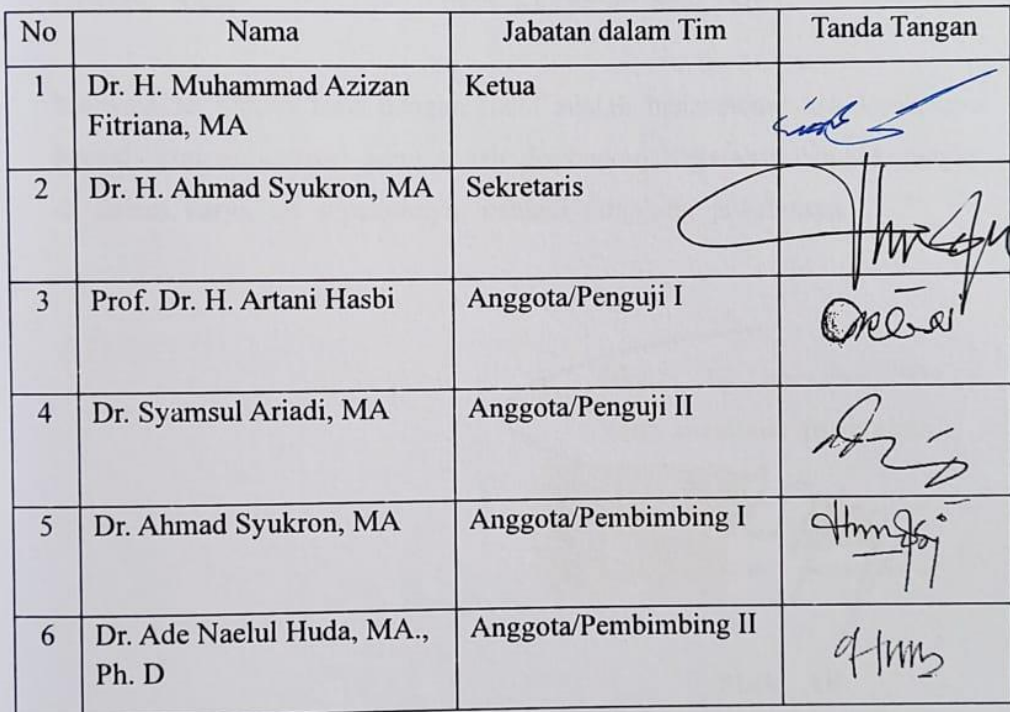 No Nama Jabatan dalam Tim Tanda Tangan
1 Dr. H. Muhammad Azizan Ketua
Fitriana, MA
2 Dr. H. Ahmad Syukron, MA Sekretaris
3 Prof. Dr. H. Artani Hasbi Anggota/Penguji I
4 Dr. Syamsul Ariadi, MA Anggota/Penguji II
5 Dr. Ahmad Syukron, MA Anggota/Pembimbing I
6 Dr. Ade Naelul Huda, MA., Anggota/Pembimbing II
Ph. D